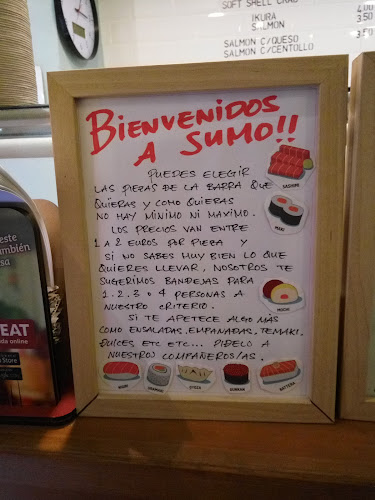 SOFT SHELL CRAB
IKURA 4.00
SALMON 3.50
SALMON C/QUESO
SALMON C/CENTOLLO 3.50
BIENVENIDOS
A SUMO!!
PUEDES ELEGIR
LAS PIEZAS DE LA BARRA QUE
QUIERAS Y COMO QUIERAS
NO HAY MINIMO NI MAXIMO.
LOS PRECIOS VAN ENTRE
1 A 2 EUROS POR PIEZA Y
SI NO SABES MUY BIEN LO QUE
QUIERES LLEVAR, NOSOTROS TE
SUGERIMOS BANDEJAS PARA
1, 2, 3 o 4 PERSONAS A
NUESTRO CRITERIO.
SI TE APETECE ALGO MÁS
COMO ENSALADAS, EMPANADAS, TEMAKI,
DULCES, ETC ETC... PIDELO A
NUESTROS COMPAÑEROS/AS.
SASHIMI
MAKI
MOCHI
NIGIRI
GYOZA
GUNKAN
BATTERA
este
también
sa
EAT
da online
Store